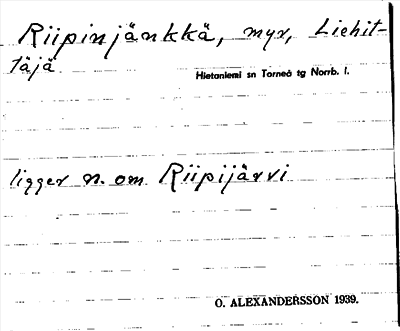 Riipinjänkkä, myr, Liehit-
täjä
Hietaniemi sn Torneå tg Norrb. l.
ligger n. om Riipijärvi
O. ALEXANDERSSON 1939.